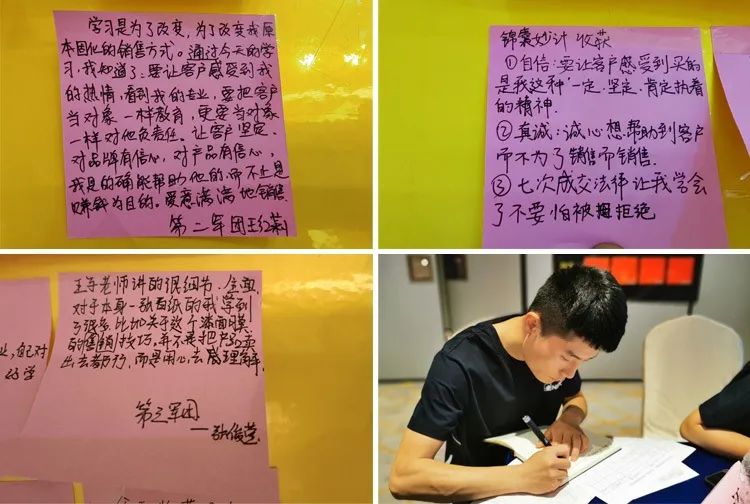 学习是为了改变,为了改变我原
本固化的销售方式。通过今天的学
习,我知道了:要让客户感受到我
的热情,看到我的专业,要把客户
当对象一样教育,更要当对象
一样对他负责任。让客户坚定
对品牌有信心,对产品有信心,
我是的确能帮助他的,而不止是
赚钱为目的。爱意满满地销售
第二军团王红莉
锦囊妙计 收获
①自信:要让客户感受到买的
是我这种“一定.坚定.肯定执着
的精神.
②真诚:诚心想帮助到客户
而不为了销售而销售.
③七次成交法师让我学会
了不要怕被拒绝
老师讲的很细节.全面
对于本身一张白纸的我学到
了很多.比如关于这个漆面膜
的销技巧,并不是把产品卖
出去都行,而是用心去感理解
第三军团
一张俊